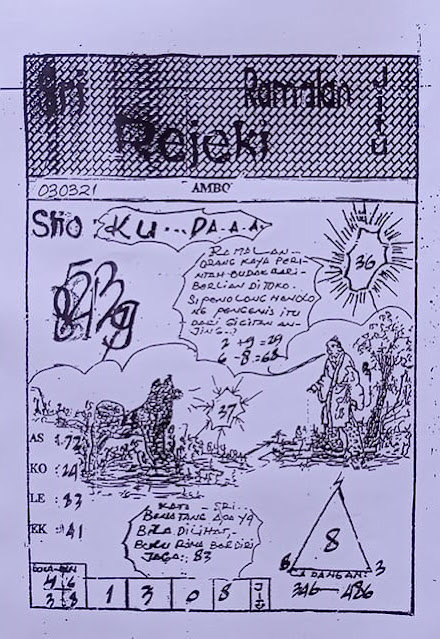 Sri
Ramalan
Jitu
Rejeki
030321
AMBO
Shio KU...DA.A.A
RAMALAN-
ORANG KAYA PERI-
NTAH BUDAK CARI
BERLIAN DI TOKO.
SI PENOLONG MENOLO
NG PENGEMIS ITU
DARI GIGITAN AN-
JING..?
2+9=29
6-8=68
36
37
AS : 172
KO : 24
LE : 83
EK : 41
KATA - SRI..
BINATANG APA YG
BILA DILIHAT,
BULU ROMA BERDIRI
JAGA: 83
8
6
3
CADANGAN:
346 - 486
4 6
3 8
1 3 0 8